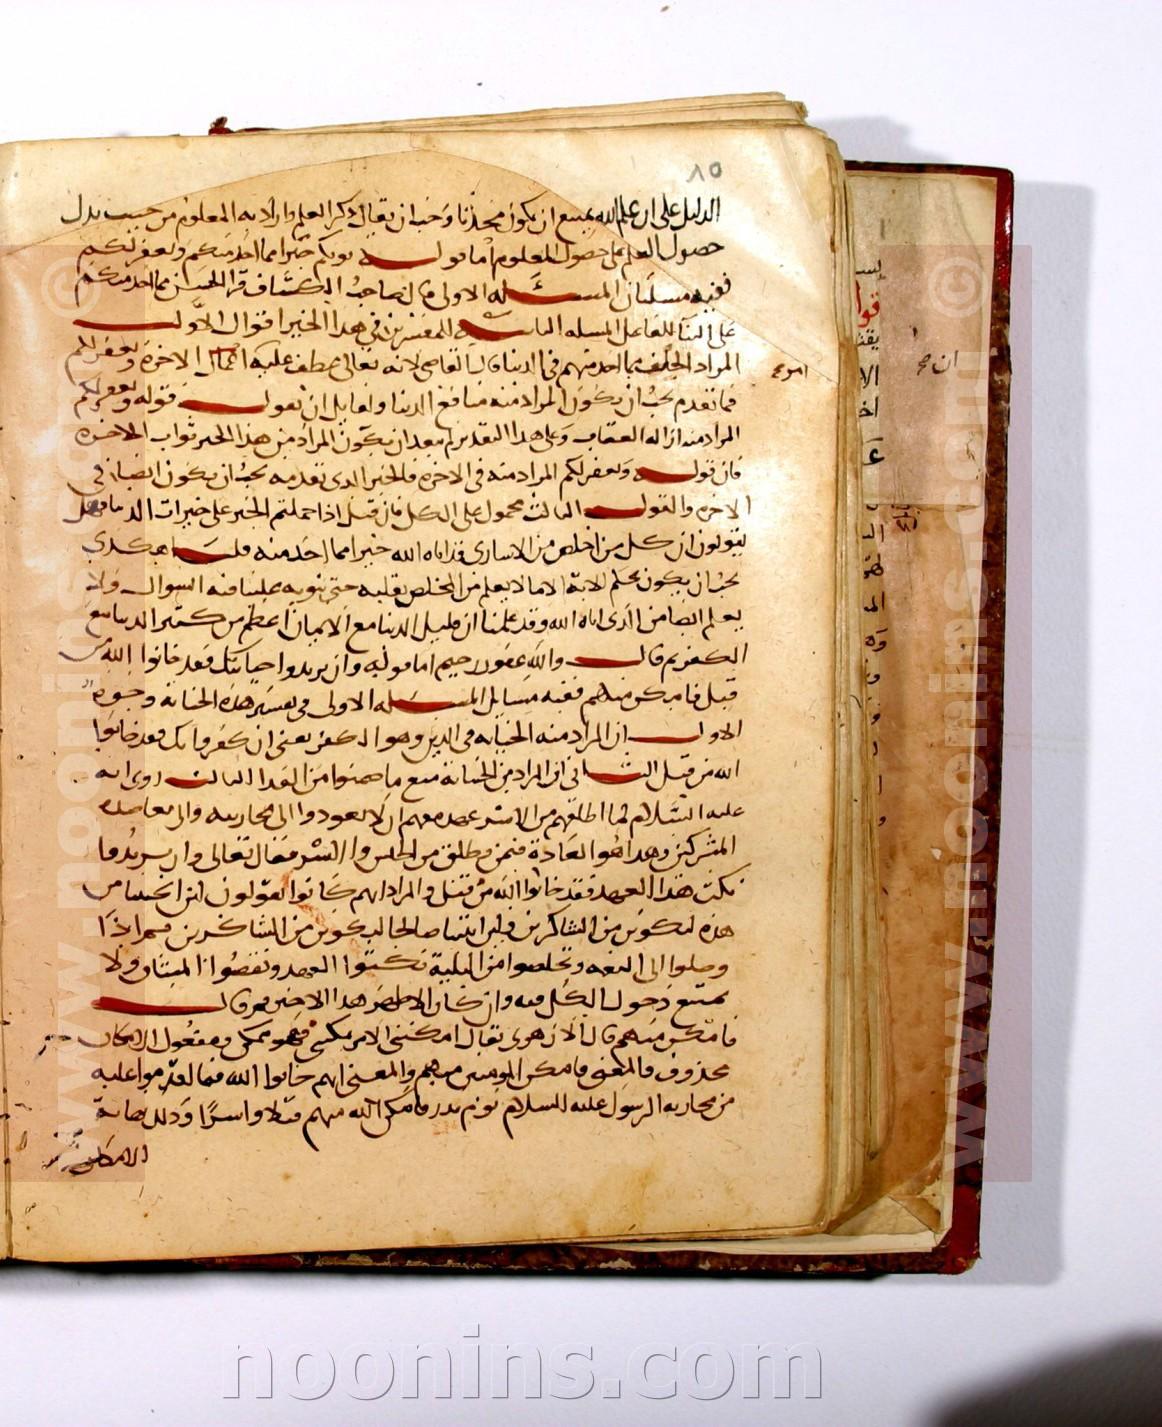 ٨٥
الدليل على ان علم الله يمتنع ان يكون محدثا وجب ان يقال ذكر العلم واراد به المعلوم من حيث يدل
حصول العلم على حصول المعلوم اما قوله يوتكم خيرا مما اخذ منكم ويغفر لكم
ففيه مسلتان المسئله الاولى قال صاحب الكشاف قرا الحسن مما اخذ منكم
على البنا للفاعل المسله الثانيه للمفسرين في هذا الخير اقوال الاول
المراد الخلف مما اخذ منهم في الدنيا قال القاضي لانه تعالى عطف عليه امر الاخرة ويغفر لكم
فما تقدم يجب ان يكون المراد منه منافع الدنيا ولقايل ان يقول قوله ويغفر لكم
المراد منه ازالة العقاب وعلى هذا التقدير لم يبعد ان يكون المراد من هذا الخير ثواب الاخره
فان قوله ويغفر لكم المراد منه في الاخره فالخير الذي تقدمه يجب ان يكون ايضا في
الاخره والقول الثالث محمول على الكل فان قيل اذا حملتم الخير على خيرات الدنيا فهل
يقولون ان كل من اخلص من الاسارى قد اتاه الله خيرا مما اخذ منه قلنا هكذي
يجب ان يكون بحكم الاية الا ما لا يعلم من المخلص بقلبه حتى يتوجه علينا فيه السوال ولا
يعلم ايضا من الذي اتاه الله وقد علمنا ان قليل الدنيا مع الايمان اعظم من كثير الدنيا مع
الكفر ثم قال والله غفور رحيم اما قوله وان يريدوا خيانتك فقد خانوا الله من
قبل فامكن منهم ففيه مسايل المسئله الاولى في تفسير هذه الخيانة وجوه
الاول ان المراد منه الخيانه في الدين وهو الكفر يعني ان كفروا بك فقد خانوا
الله من قبل الثاني ان المراد من الخيانة منع ما ضمنوا من الفدا الثالث روى انه
عليه السلام لما اطلقهم من الاسر عهد معهم ان لا يعودوا الى محاربته والى معاهده
المشركين وهذا هو العادة فيمن يطلق من الحبس والاسر فقال تعالى وان يريدوا
نكث هذا العهد فقد خانوا الله من قبل والمراد انهم كانوا يقولون لين انجيتنا من
هذه لنكونن من الشاكرين ولين اتيتنا صالحا لنكونن من الشاكرين ثم اذا
وصلوا الى النعمه وتخلصوا من البلية نكثوا العهد ونقضوا الميثاق ولا
يمتنع دخول الكل فيه وان كان الاظهر هذا الاخير ثم قال
فامكن منهم قال الازهري يقال امكنني الامر يمكنني فهو ممكن ومفعول الامكان
محذوف فالمعنى فامكن المومنين منهم والمعنى انهم خانوا الله فيما اقدموا عليه
من محاربه الرسول عليه السلام يوم بدر فامكن الله منهم قتلا واسرا وذلك نهاية
الامكان
ان صح
www.noonins.com
www.noonins.com
noonins.com